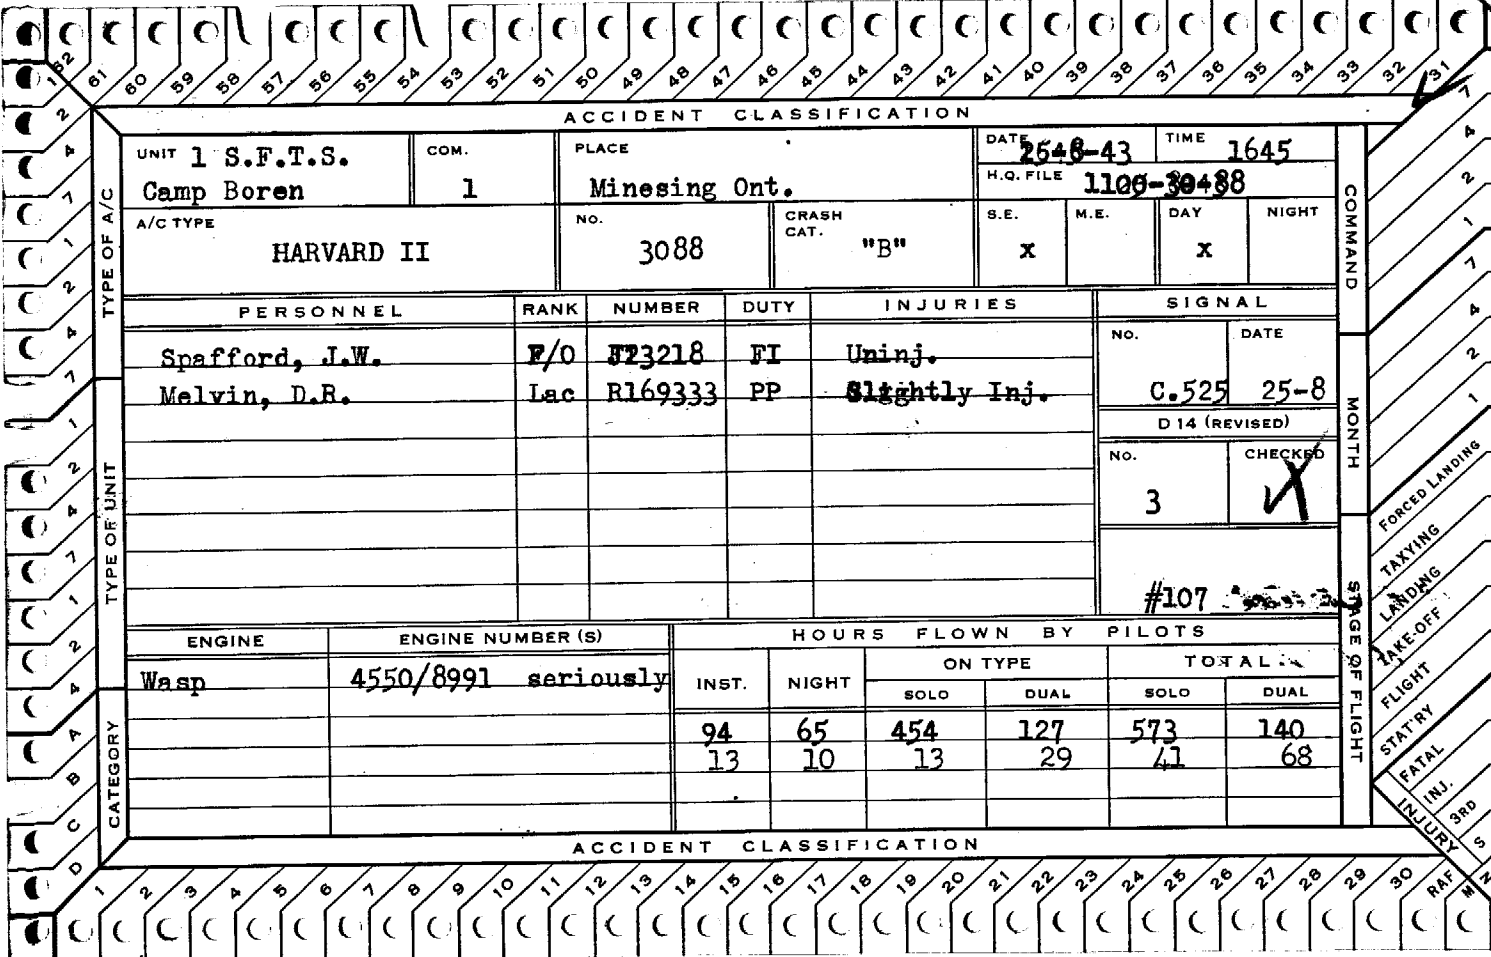 62 61 60 59 58 57 56 55 54 53 52 51 50 49 48 47 46 45 44 43 42 41 40 39 38 37 36 35 34 33 32 31
ACCIDENT CLASSIFICATION
UNIT 1 S.F.T.S.
Camp Boren
COM.
1
PLACE
Minesing Ont.
DATE -43
TIME 1645
H.Q. FILE
A/C TYPE
HARVARD II
NO.
3088
CRASH CAT.
"B"
S.E.
x
M.E.
DAY
x
NIGHT
PERSONNEL RANK NUMBER DUTY INJURIES
Spafford, J.W. F/O 3218 FI Uninj.
Melvin, D.R. Lac R169333 PP Slightly Inj.
SIGNAL
NO. DATE
C.525 25-8
D 14 (REVISED)
NO. CHECKED
3
#107
ENGINE ENGINE NUMBER (S)
Wasp 4550/8991 seriously
HOURS FLOWN BY PILOTS
ON TYPE TOTAL
INST. NIGHT SOLO DUAL SOLO DUAL
94 65 454 127 573 140
13 10 13 29 41 68
ACCIDENT CLASSIFICATION
1 2 3 4 5 6 7 8 9 10 11 12 13 14 15 16 17 18 19 20 21 22 23 24 25 26 27 28 29 30 RAF M N
TYPE OF A/C
TYPE OF UNIT
CATEGORY
1 2 4 7 1 2 4 7 1 2 4 7 1 2 4 A B C D
COMMAND
MONTH
STAGE OF FLIGHT
7 4 2 1 7 4 2 1
FORCED LANDING
TAXYING
LANDING
TAKE-OFF
FLIGHT
STAT'RY
FATAL
INJ.
3RD
S
INJURY